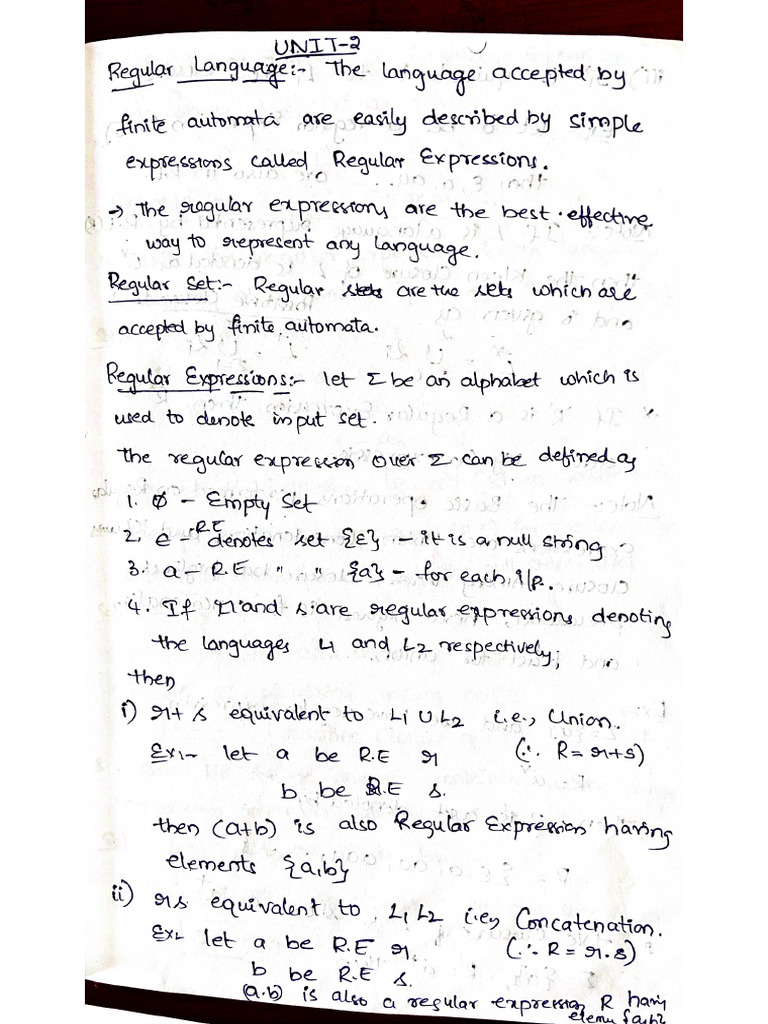 UNIT-2
Regular Language:- The language accepted by
finite automata are easily described by simple
expressions called Regular Expressions.
→ The regular expressions are the best effective
way to represent any language.
Regular Set:- Regular sets are the sets which are
accepted by finite automata.
Regular Expressions:- let Σ be an alphabet which is
used to denote input set.
The regular expression over Σ can be defined as
1. Ø - Empty Set
2. e - R.E denotes set {ε} - it is a null string
3. a - R.E " " {a} - for each i/p.
4. If r and s are regular expressions denoting
the languages L1 and L2 respectively;
then
i) r+s equivalent to L1 U L2 i.e., Union.
Ex:- let a be R.E r (∴ R = r+s)
b be R.E s.
then (a+b) is also Regular Expression having
elements {a,b}
ii) rs equivalent to L1 L2 i.e., Concatenation.
Ex:- let a be R.E r. (∴ R = r.s)
b be R.E s.
(a.b) is also a regular expression R having